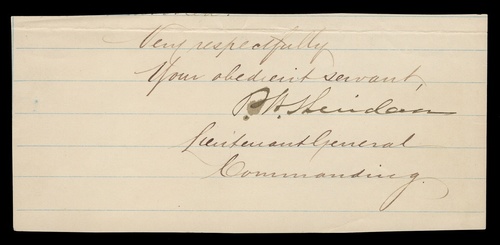 Very respectfully
Your obedient servant,
P. H. Sheridan
Lieutenant General
Commanding.